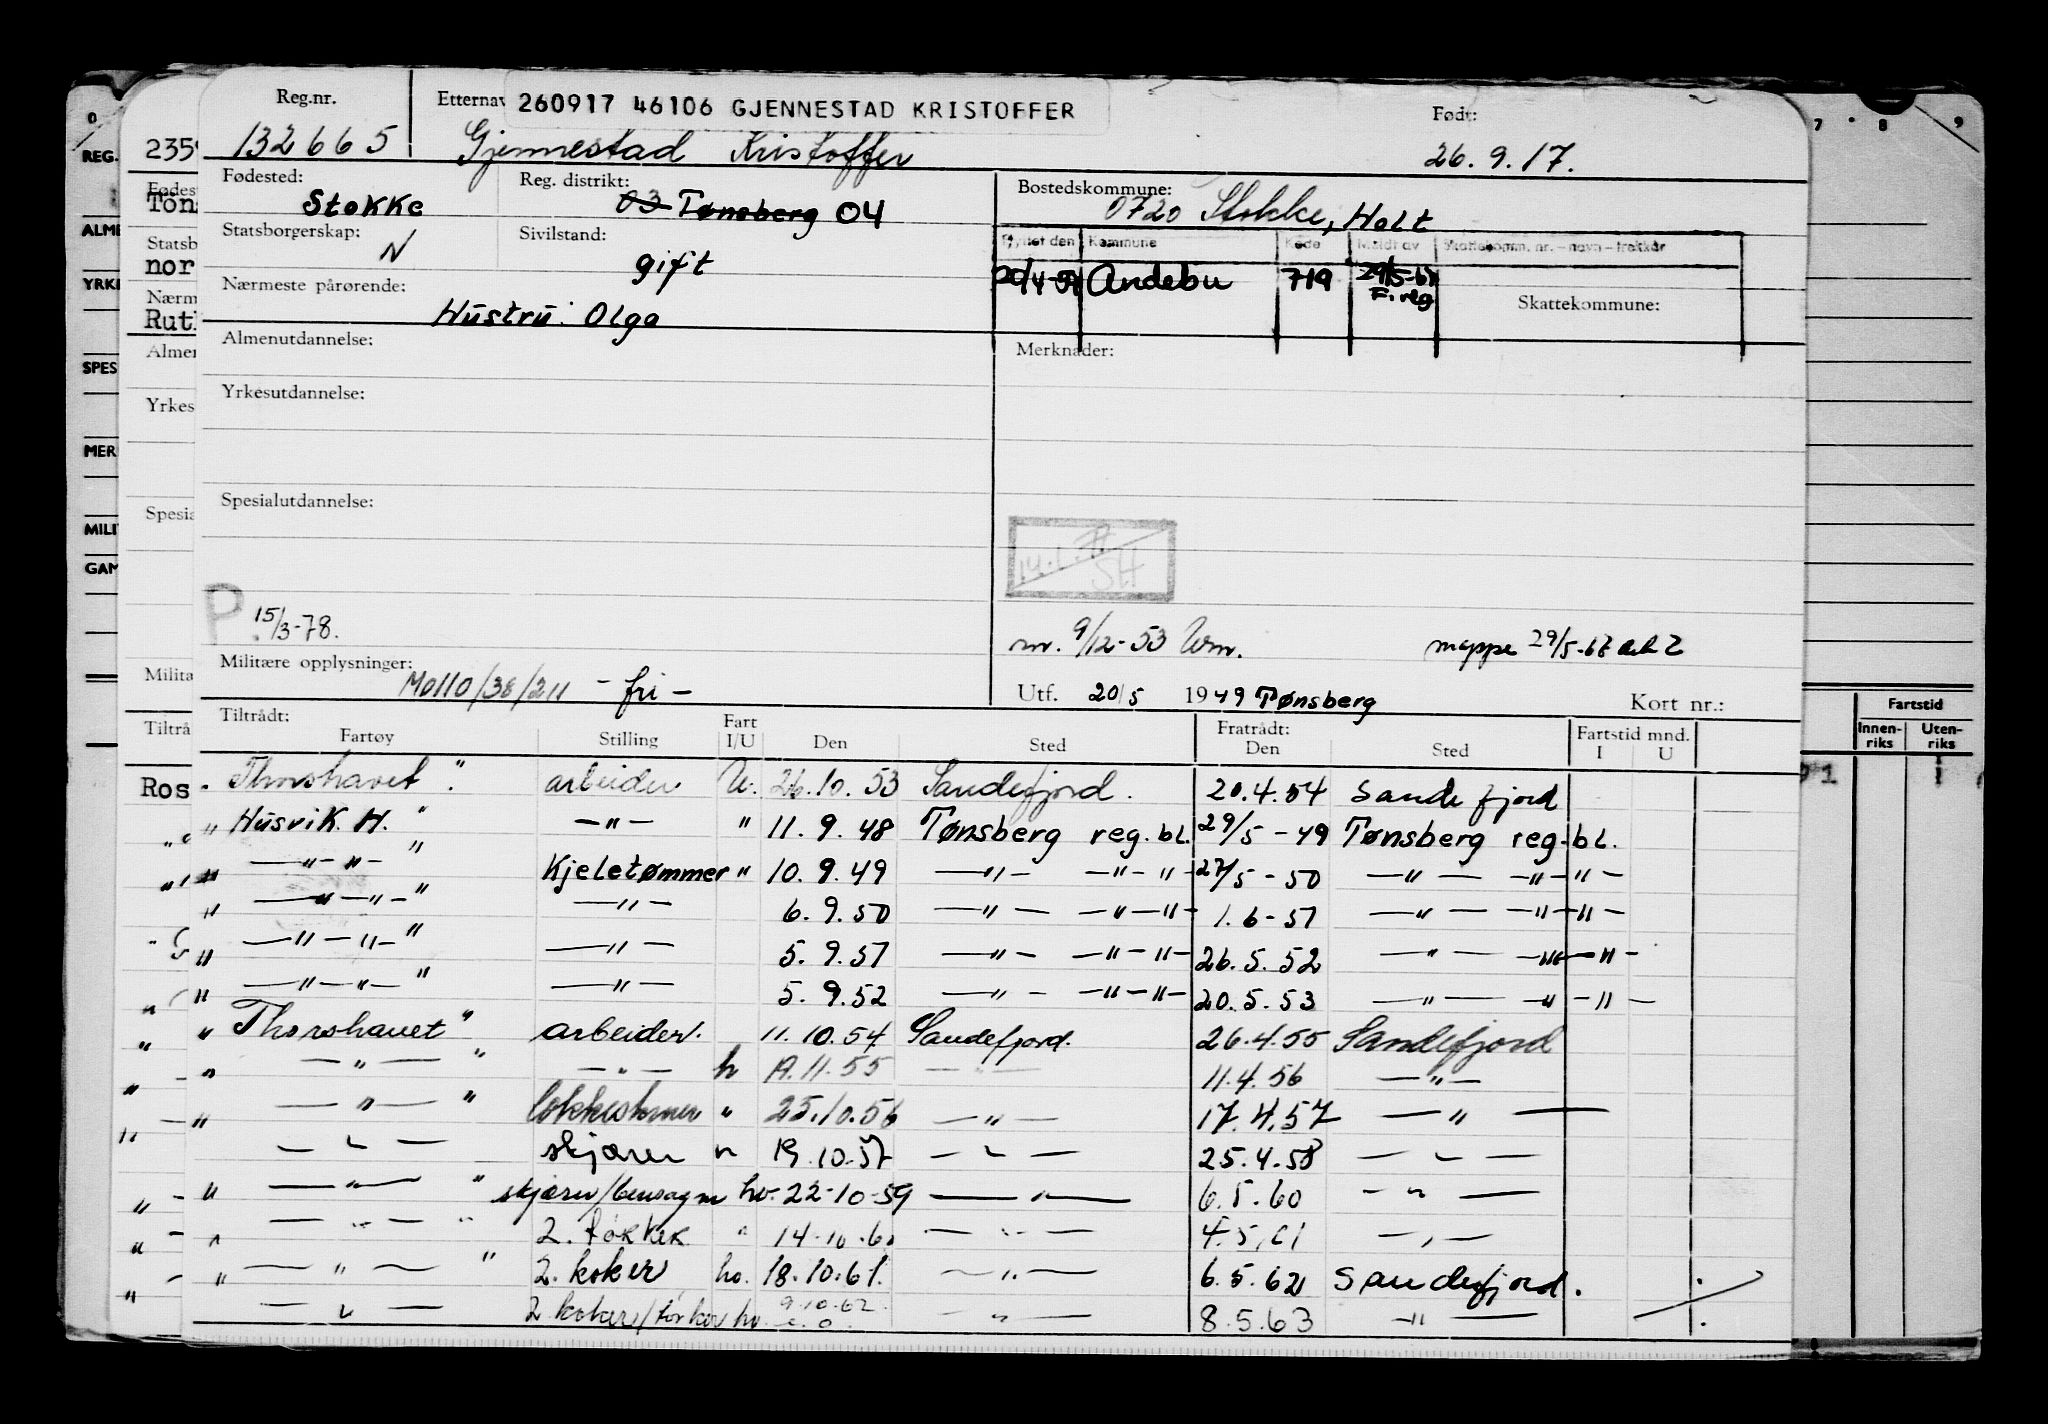 Reg.nr. Etternav 260917 46106 GJENNESTAD KRISTOFFER Født:
132665 Gjennestad Kristoffer 26.9.17.
Fødested: Stokke Reg. distrikt: 03 Tønsberg 04 Bostedskommune: 0720 Stokke, Holt
Statsborgerskap: N Sivilstand: gift
Flyttet den Kommune Kode Meldt av Skattekomm. nr. – navn – trekkår
Andebu 719 29/5-67 F.reg
Nærmeste pårørende: Hustru: Olga Skattekommune:
Almenutdannelse: Merknader:
Yrkesutdannelse:
Spesialutdannelse:
P. 15/3-78.
m. 9/12-53 mappe 29/5-67
Militære opplysninger: M0110/38/211 – fri –
Utf. 20/5 1949 Tønsberg Kort nr.:
Tiltrådt: Fratrådt:
Fartøy Stilling Fart I/U Den Sted Den Sted Fartstid mnd. I U
Thorshavet " arbeider U. 26.10.53 Sandefjord. 20.4.54 Sandefjord
" Husvik H. " —"— " 11.9.48 Tønsberg reg.bl. 29/5-49 Tønsberg reg.bl.
" —"—"— " Kjeletømmer " 10.9.49 —"— —"—"— 27/5-50 —"— —"—"—
" —"—"— " —"— 6.9.50 —"— —"—"— 1.6-51 —"— —"—"—
" —"—"— " —"— 5.9.51 —"— —"—"— 26.5.52 —"— —"—"—
" —"—"— " —"— 5.9.52 —"— —"—"— 20.5.53 —"— —"—"—
" Thorshavet " arbeider. 11.10.54 Sandefjord. 26.4.55 Sandefjord
" —"— " —"— 11.55 —"— 11.4.56 —"—
" —"— " " 25.10.56 —"— 17.4.57 —"—
—"— skjærer " 19.10.57 —"— 25.4.58 —"—
" —"— " skjærer/bensagm hv. 22-10-59 —"— 6.5.60 —"—
" —"— " 2. " 14.10.60 —"— 4.5.61 —"—
" —"— " 2. koker hv. 18.10.61. —"— 6.5.62 Sandefjord.
—"— 2 koker/ hv. 9.10.62 —"— 8.5.63 —"—
REG.
235
Fødes
Tøns
ALME
Statsb
nor
YRKE
Nærm
Rut
Almen
SPES
Yrkes
MER
Spesia
MILI
GAM
Milita
Tiltrå
Ros
0
7 8 9
Fartstid
Innen-riks Uten-riks